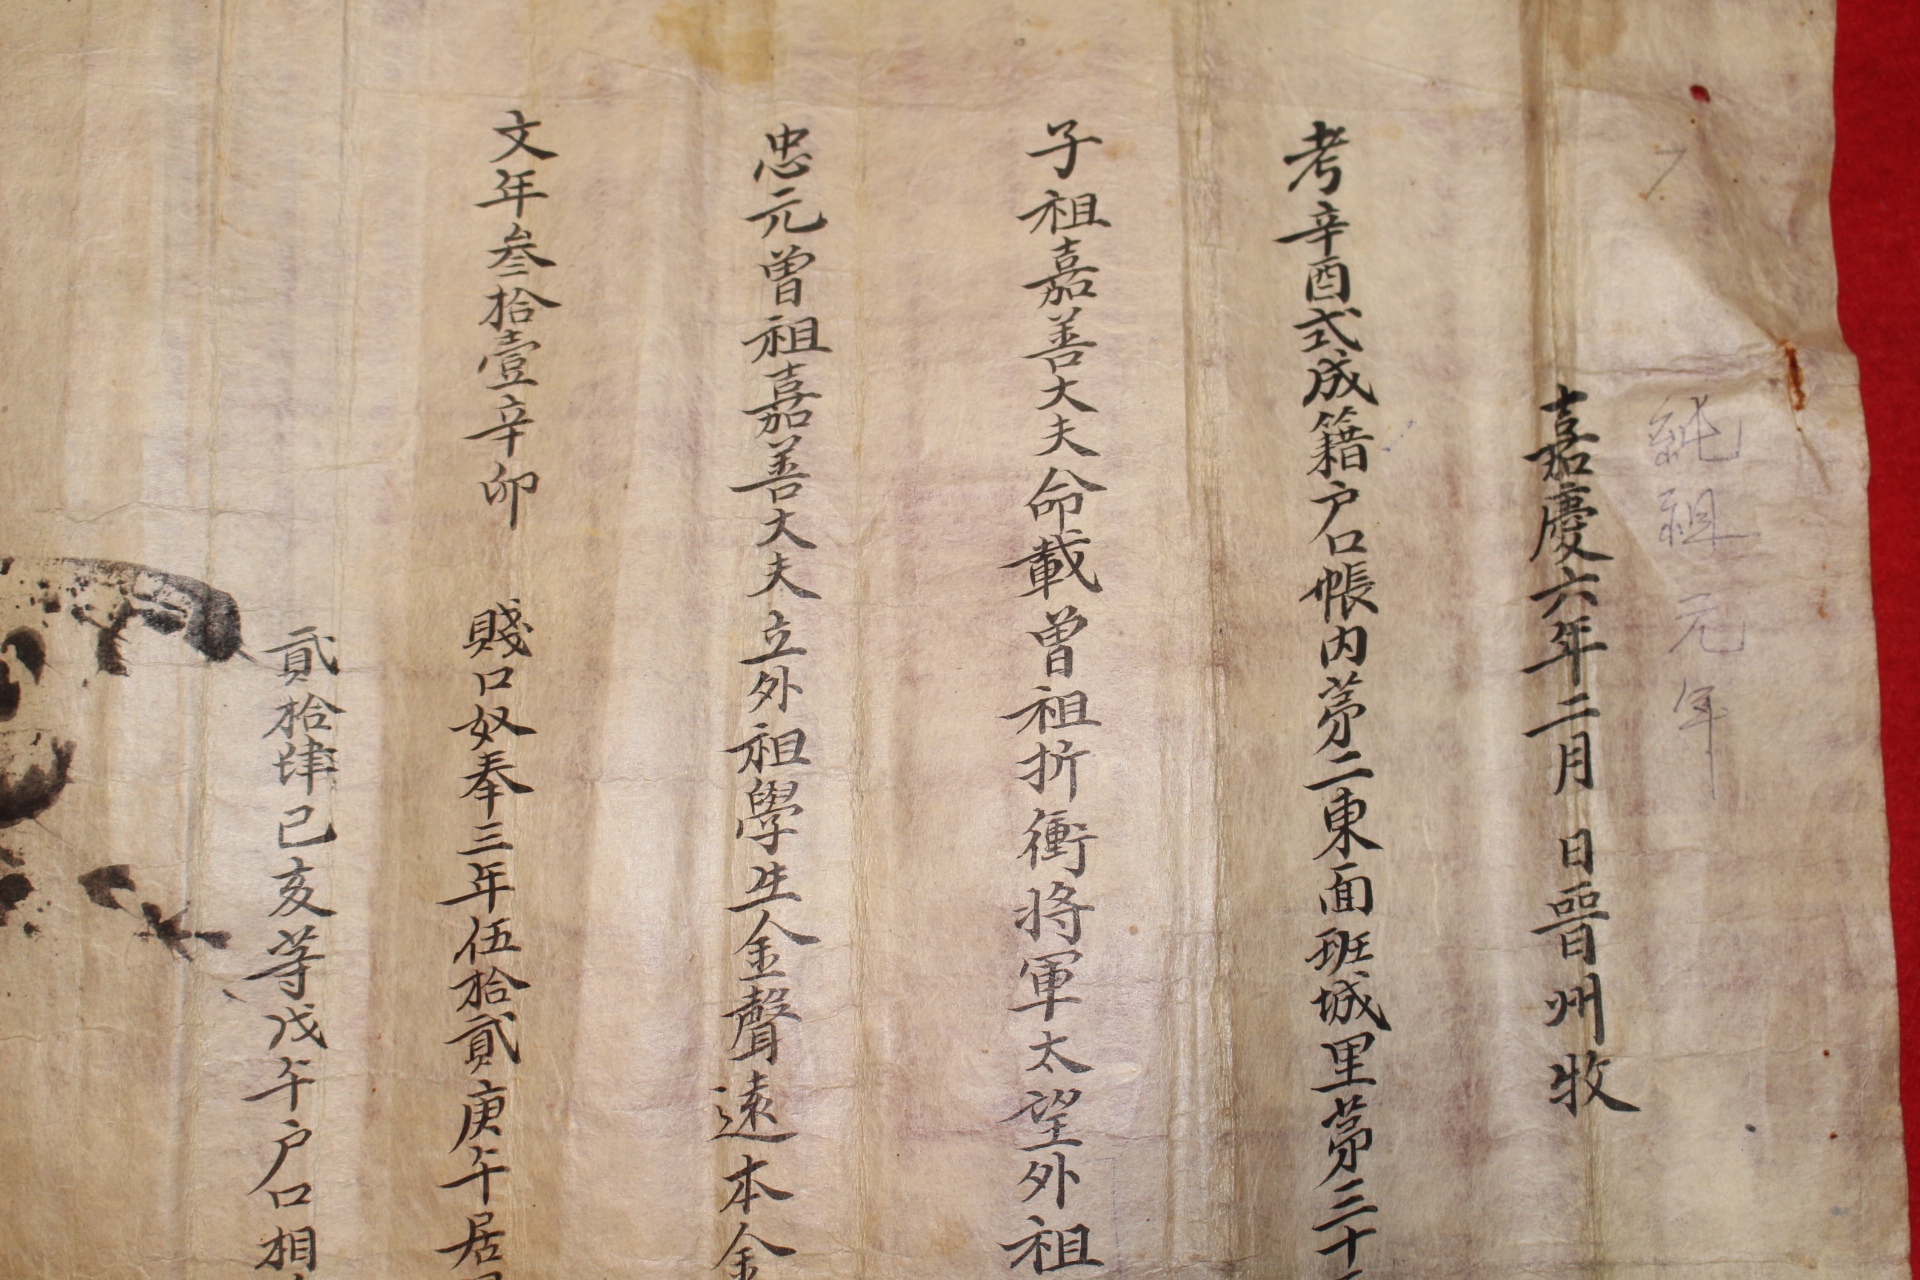 純祖元年
嘉慶六年二月 日晉州牧
考辛酉式成籍户口帳内苐二東面班城里苐三十
子祖嘉善大夫命載曽祖折衝将軍太望外祖
忠元曽祖嘉善大夫立外祖學生金聲遠本金
文年叁拾壹辛卯 賤口奴奉三年伍拾貳庚午居
貳拾肆己亥等戊午户口相